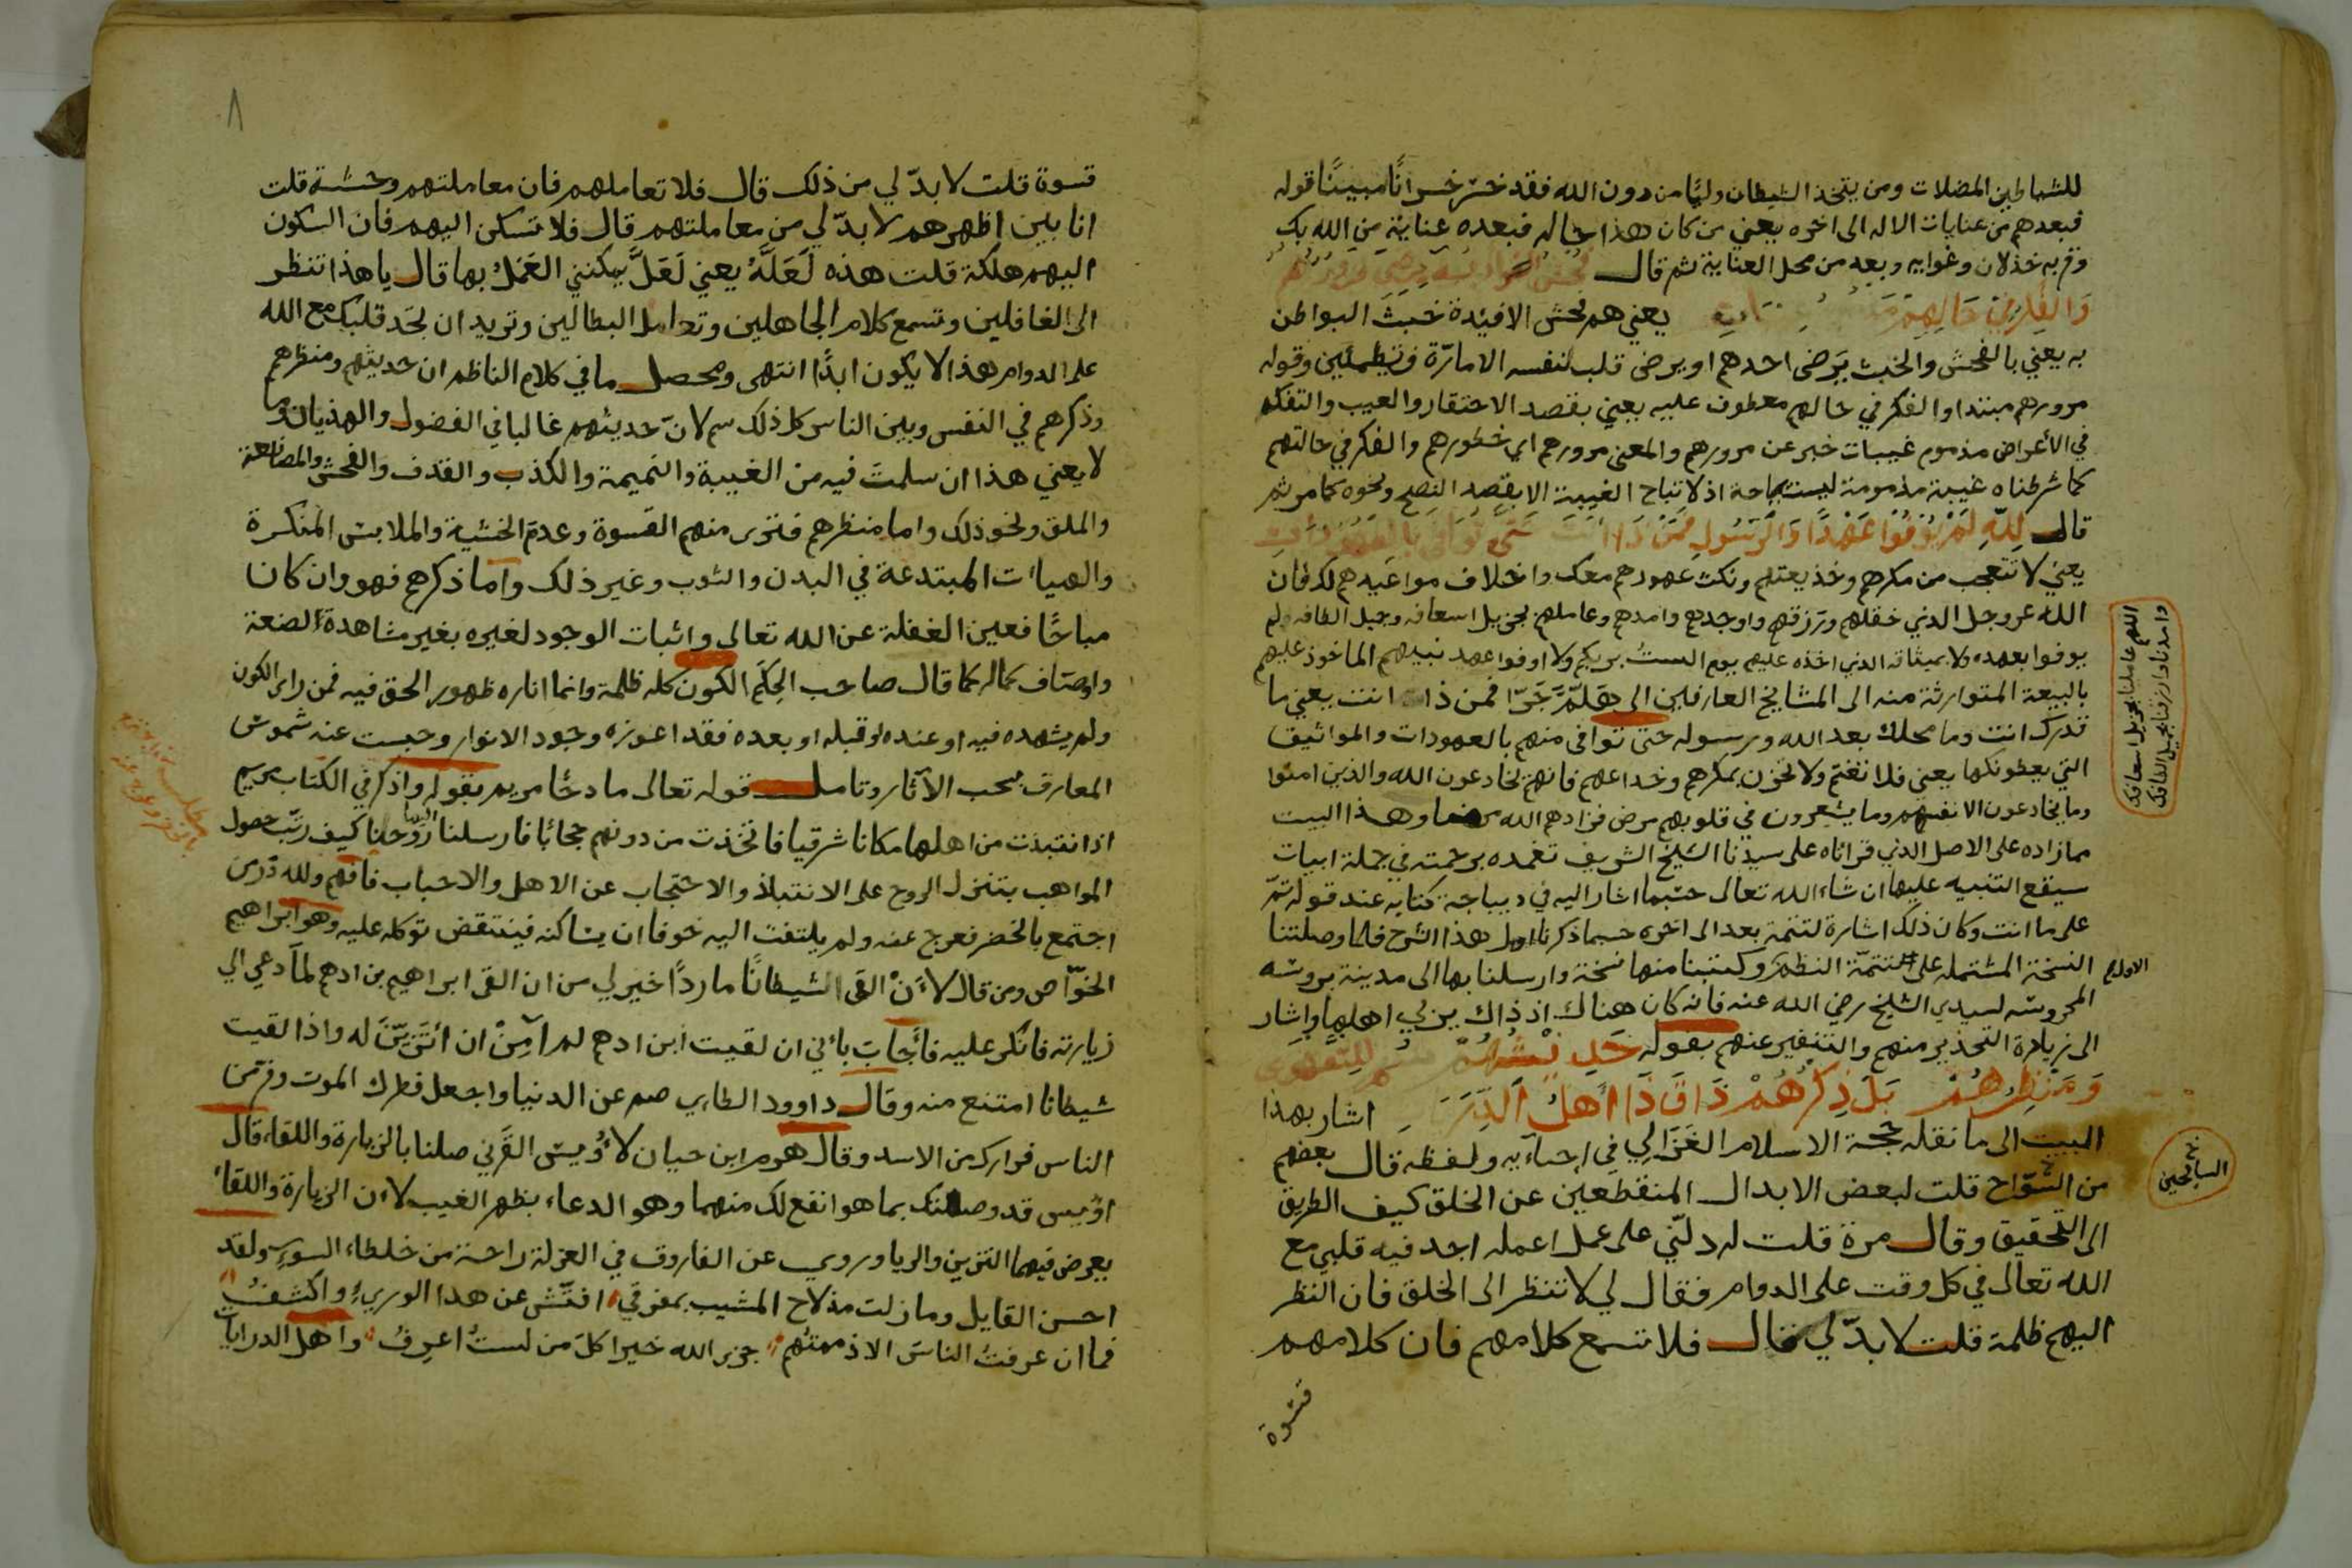 للشياطين المضلات ومن يتخذ الشيطان وليًا من دون الله فقد خسر خسرانًا مبينًا قوله
فبعدهم من عنايات الاله الى اخره يعني من كان هذا حاله فبعده عناية من الله بك
وقربه خذلان وغوايه وبعد من محل العناية ثم قال
يعني هم فحش الافئدة خبث البواطن
به يعني بالفحش والخبث يرضى احدهم او يرضى قلب لنفسه الامارّة فتطمئن وقوله
مرورهم مبتدا والفكر في حالهم معطوف عليه يعني بقصد الاحتقار والعيب والتفكه
في الأعراض مذموم غيبات خبر عن مرورهم والمعنى مرورهم اي خطورهم والفكر في حالتهم
كما شرطناه غيبة مذمومة ليست مباحة اذ لا تباح الغيبة الا بقصد النصح ونحوه كما مر ثم
قال لله لم يوفوا عهدًا والرسول فمن ذا انت حتى توافى بالعهودات
يعني لا تتعجب من مكرهم وخديعتهم ونكث عهودهم معك واخلاف مواعيدهم لك فان
الله عز وجل الذي خقلهم ورزقهم واوجدهم وامدهم وعاملهم بجزيل اسعافه وجميل الطافه ولم
يوفوا بعهده ولا بميثاقه الذي اخذه عليهم يوم الستُ بربكم ولا اوفوا عهد نبيهم الماخوذ عليهم
بالبيعة المتوارثة منه الى المشايخ العارفين الى هلمّ جرّا فمن ذا انت يعني ما
قدرك انت وما محلك بعد الله ورسوله حتى توافى منهم بالعهودات والمواثيق
التي يعطونكها يعني فلا تغتم ولا تحزن بمكرهم وخداعهم فانهم يخادعون الله والذين امنوا
وما يخادعون الا انفسهم وما يشعرون في قلوبهم مرض فزادهم الله مرضا وهذا البيت
مما زاده على الاصل الذي قراناه على سيدنا الشيخ الشريف تغمده برحمته في جملة ابيات
سيقع التنبيه عليها ان شاء الله تعالى حسبما اشار اليه في ديباجة كتابه عند قوله تمّ
على ما انت وكان ذلك اشارة لتتمة بعد الى اخره حسبما ذكرنا اول هذا الشرح فلما وصلتنا
النسخة المشتمله على تتمّة النظم وكتبنا منها نسخة وارسلنا بها الى مدينة بروسه
المحروسه لسيدي الشيخ رضي الله عنه فانه كان هناك اذ ذاك يربي اهلها واشار
الى زيادة التحذير منهم والتنفير عنهم بقوله حديثهم
ومنظرهم بل ذكرهم ذاق ذا أهل اشار بهذا
البيت الى ما نقله حجة الاسلام الغزالي في احياءيه ولفظه قال بعضهم
من السوّاح قلت لبعض الابدال المنقطعين عن الخلق كيف الطريق
الى التحقيق وقال مرة قلت له دلّني على عمل اعمله اجد فيه قلبي مع
الله تعالى في كل وقت على الدوام فقال لي لا تنظر الى الخلق فان النظر
اليهم ظلمة قلت لا بدّ لي قال فلا تسمع كلامهم فان كلامهم
قسوة
اللهم عاملنا بجزيل اسعافك
وامدنا وارزقنا بجميل الطافك
الاولى
السايحين
٨
قسوة قلت لا بدّ لي من ذلك قال فلا تعاملهم فان معاملتهم وحشة قلت
انا بين اظهرهم لا بدّ لي من معاملتهم قال فلا تسكن اليهم فان السكون
اليهم هلكة قلت هذه لَعَلَّهُ يعني لَعَلَّ يمكنني العَمَلُ بها قال يا هذا تنظر
الى الغافلين وتسمع كلام الجاهلين وتعامل البطالين وتريد ان تجد قلبك مع الله
على الدوام هذا لا يكون ابدًا انتهى ومحصل ما في كلام الناظم ان حديثهم ومنظرهم
وذكرهم في النفس وبين الناس كل ذلك سم لانّ حديثهم غالبا في الفضول والهذيان وما
لا يعني هذا ان سلمت فيه من الغيبة والنميمة والكذب والقذف والفحش والمصانعة
والملق ونحو ذلك واما منظرهم فترى منهم القسوة وعدم الخشية والملابس المنكرة
والهيات المبتدعة في البدن والثوب وغير ذلك واما ذكرهم فهو وان كان
مباحًا فعين الغفلة عن الله تعالى واثبات الوجود لغيره بغير مشاهدة الصنعة
واوصاف كماله كما قال صاحب الحِكَم الكون كله ظلمة وانما اناره ظهور الحق فيه فمن راى الكون
ولم يشهده فيه او عنده او قبله او بعده فقد اعوزه وجود الانوار وحجبت عنه شموس
المعارف بسحب الآثار وتامل قوله تعالى مادحًا مريم بقوله واذكر في الكتاب مريم
اذ انتبذت من اهلها مكانا شرقيا فاتخذت من دونهم حجابًا فارسلنا اليها روحنا كيف رتب حصول
المواهب بتنزل الروح على الانتباذ والاحتجاب عن الاهل والاحباب فافهم ولله درّ من
اجتمع بالخضر فعرج عنه ولم يلتفت اليه خوفا ان يساكنه فينتقض توكله عليه وهو ابراهيم
الخوّاص ومن قال لأَنْ القى الشيطانًا ماردًا خير لي من ان القى ابراهيم بن ادهم لمّا دعي الي
زيارته فانكر عليه فأجاب بأني ان لقيت ابن ادهم لم آمن ان اتزيّن له واذا لقيت
شيطانا امتنع منه وقال داوود الطاءي صم عن الدنيا واجعل فطرك الموت وفر من
الناس فرارك من الاسد وقال هرم ابن حيان لأُويس القرني صلنا بالزيارة واللقاء قال
اوُيس قد وصلتك بما هو انفع لك منهما وهو الدعاء بظهر الغيب لان الزيارة واللقاء
يعرض فيهما التزين والريا وروي عن الفاروق في العزلة راحة من خلطاء السوء ولقد
احسن القايل وما زلت مذ لاح المشيب بمفرقي افتّش عن هذا الورىء واكشفُ
فما ان عرفتُ الناسَ الا ذممتُهم جزى الله خيرا كلَ من لستُ اعرفُ واهل الدرايات